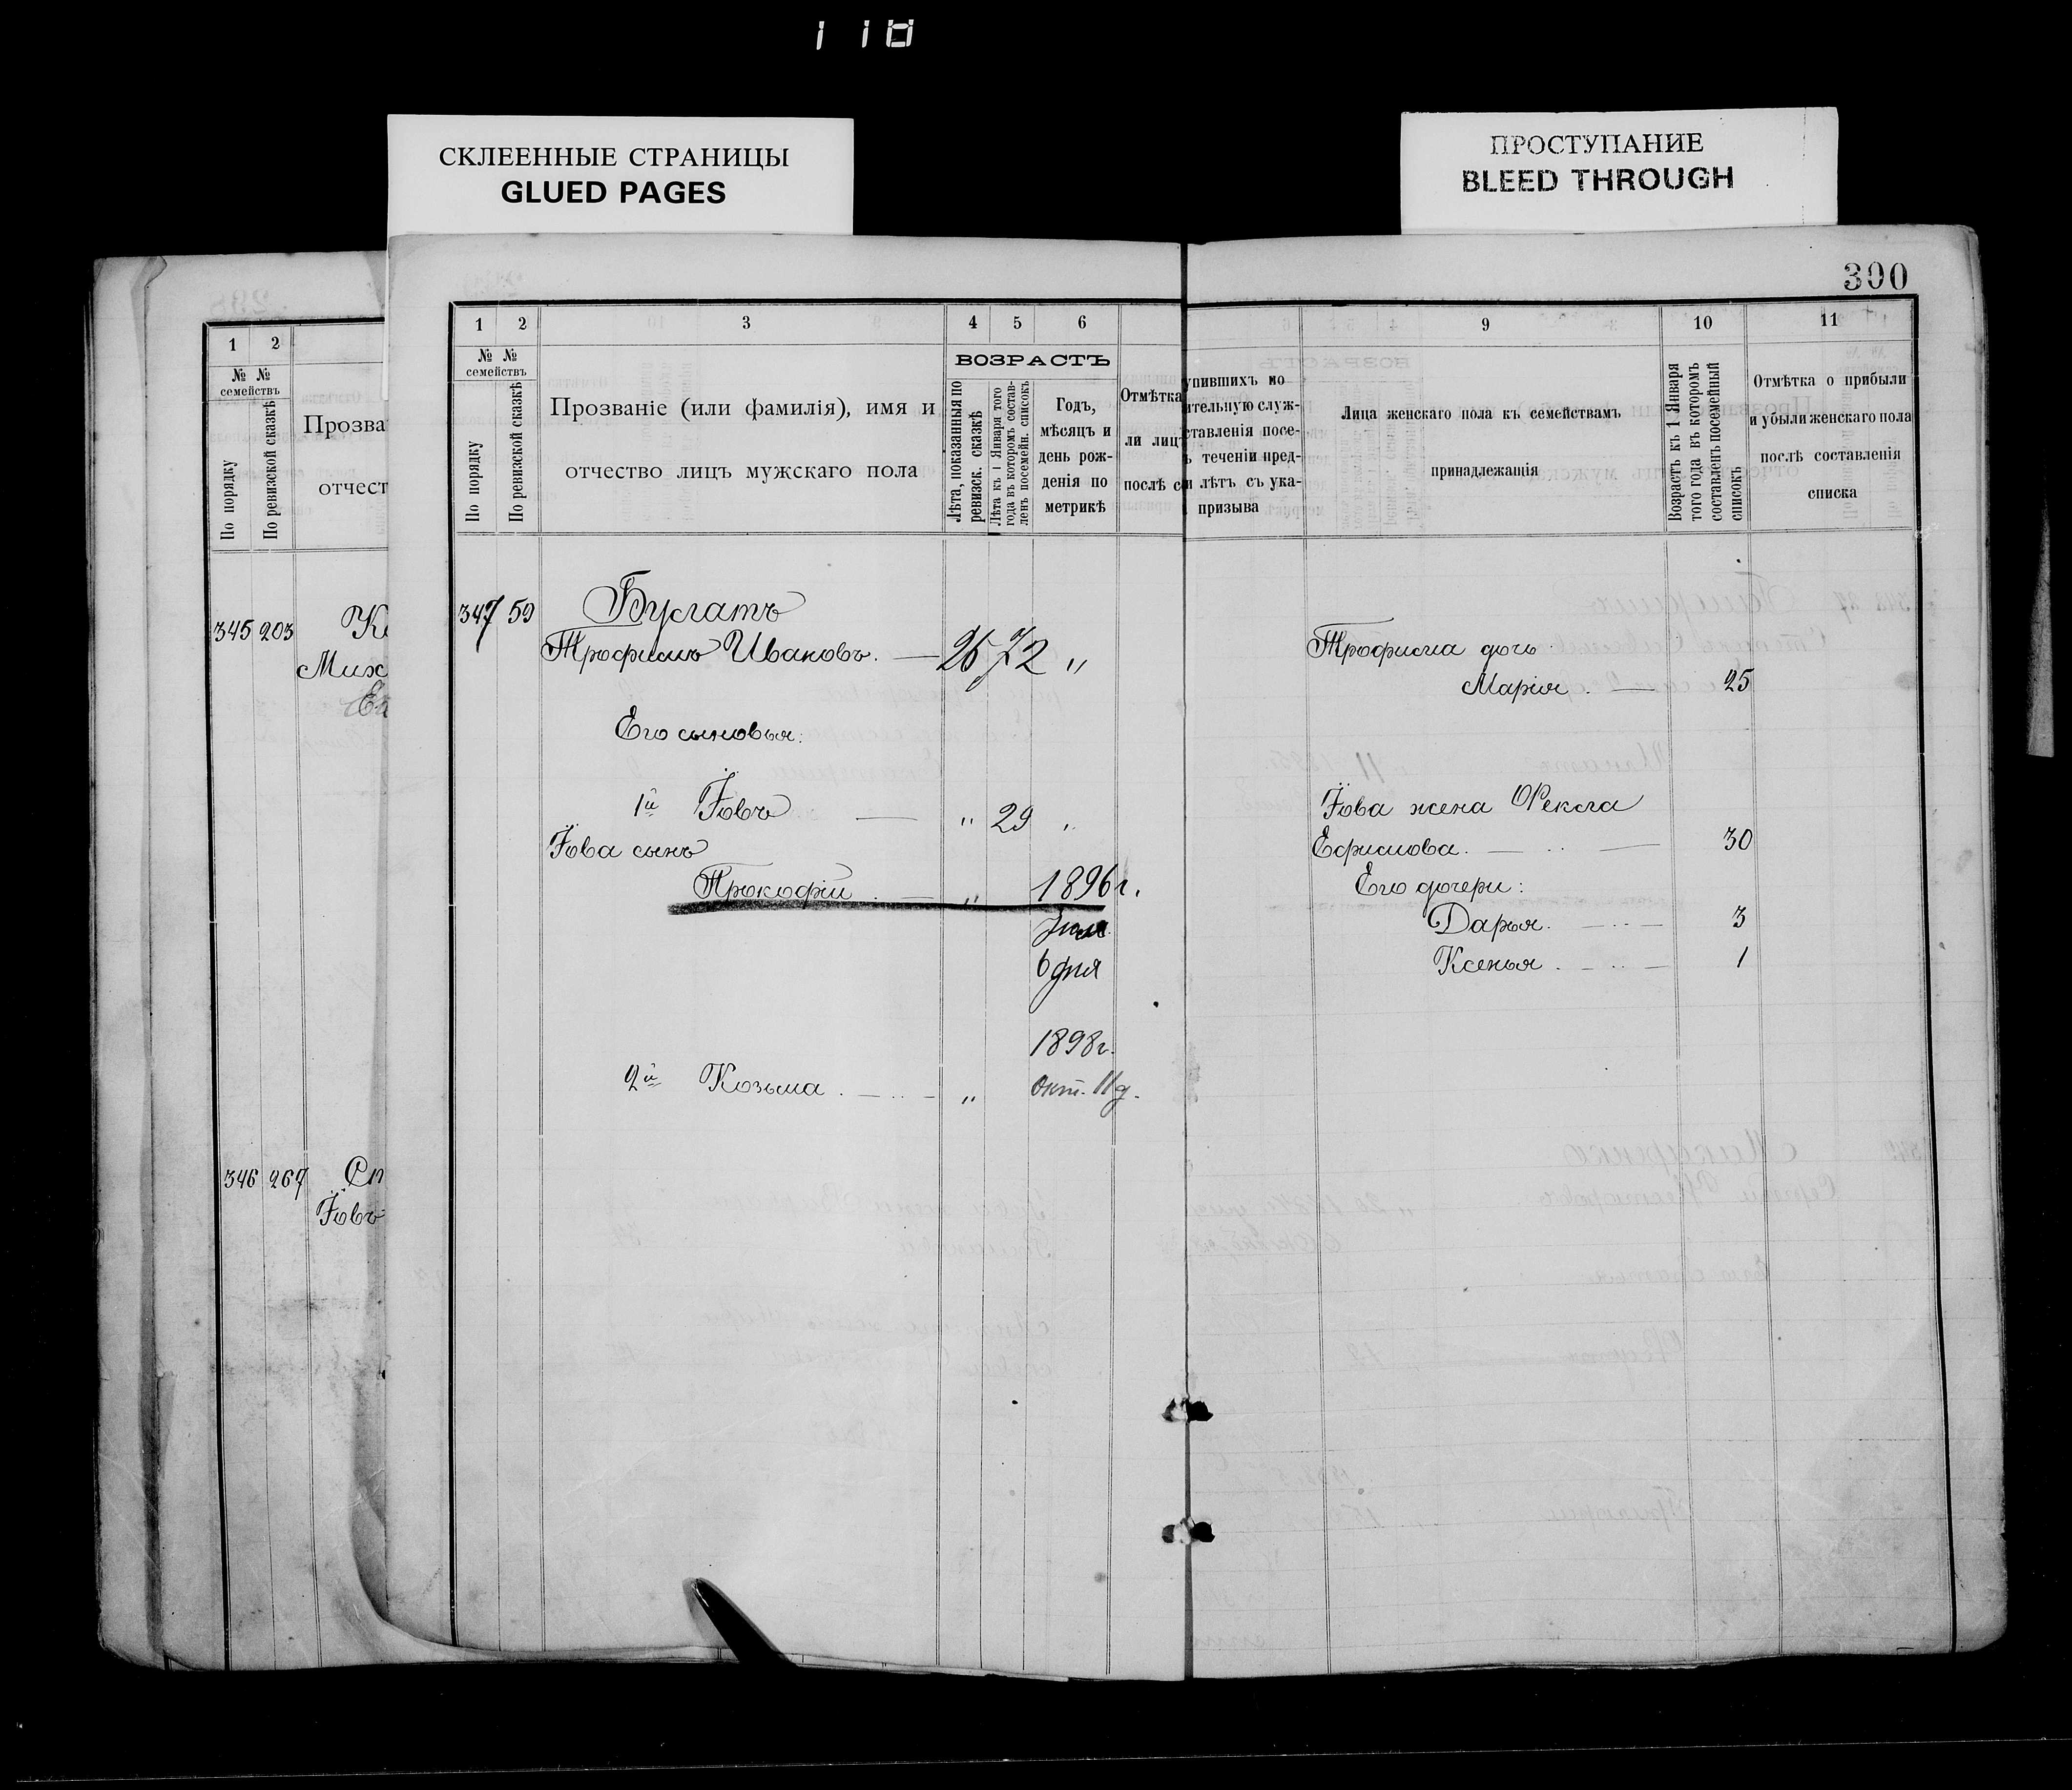 118
СКЛЕЕННЫЕ СТРАНИЦЫ
GLUED PAGES
ПРОСТУПАНИЕ
BLEED THROUGH
300
1 2
№ № семействъ
По порядку
По ревизской сказкѣ
Прозва
отчест
345 203
Мих
346 267
Іовъ
1 2 3 4 5 6
№ № семействъ
По порядку
По ревизской сказкѣ
Прозваніе (или фамилія), имя и
отчество лицъ мужскаго пола
ВОЗРАСТЪ
Лѣта, показанныя по ревизск. сказкѣ
Лѣта къ 1 Января того года въ которомъ составленъ посемейн. списокъ
Годъ,
мѣсяцъ и
день рож-
денія по
метрикѣ
Отмѣтка
ли лицъ
послѣ с
347 59 Булгатъ
Трофимъ Ивановъ. — 26 72 "
Его сыновья:
1й Іовъ — " 29 "
Іова сынъ
Прокофій — " 1896 г.
6 дня
1898 г.
2й Козьма — " Окт. 11 д.
9 10 11
упившихъ по
ительную служ-
ставленія посе-
ъ теченіи пред-
и лѣтъ съ ука-
призыва
Лица женскаго пола къ семействамъ
принадлежащія
Возрастъ къ 1 Января того года въ которомъ составленъ посемейный списокъ
Отмѣтка о прибыли
и убыли женскаго пола
послѣ составленія
списка
Трофима дочь
Марія. — 25
Іова жена Фекла
Ефимова. — 30
Его дочери:
Дарья. — 3
Ксенья. — 1